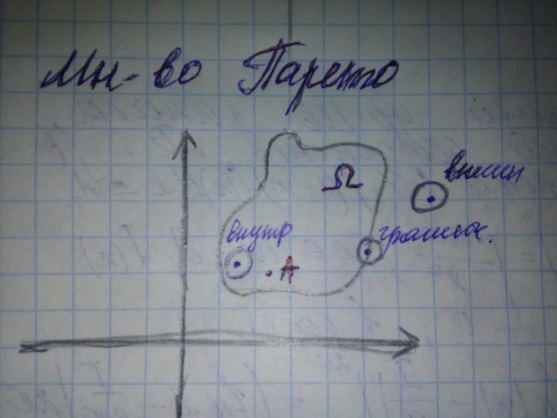 Мн-во Парето
Ω
внешн
внутр
гранич.
A